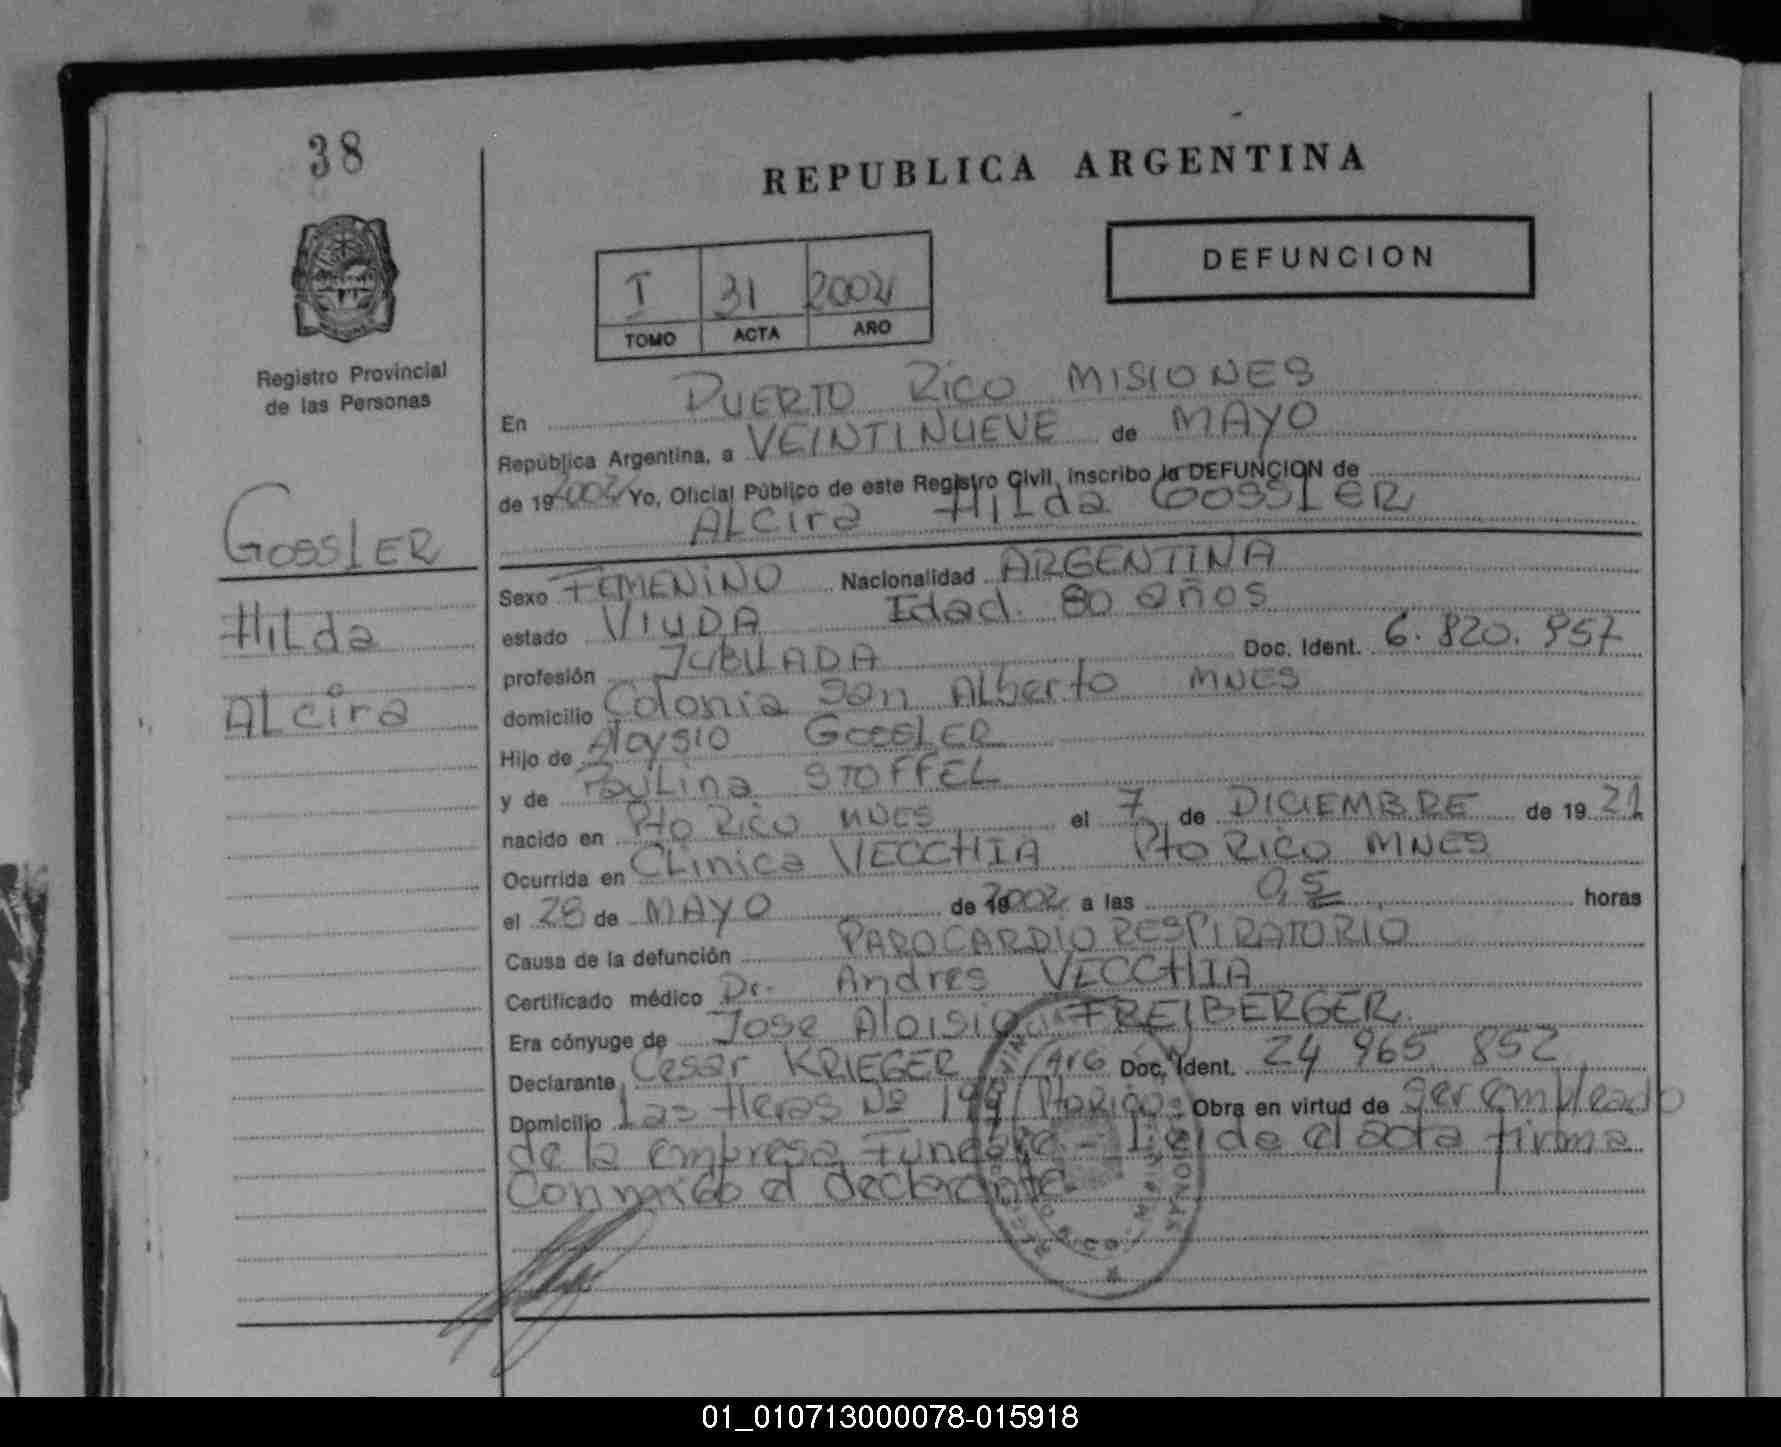 38
REPUBLICA ARGENTINA
DEFUNCION
I 31 2002
TOMO ACTA AÑO
Registro Provincial
de las Personas
GOSSLER
HILda
ALcira
En PUERTO RICO MISIONES
República Argentina, a VEINTINUEVE de MAYO
de 19 2002 Yo, Oficial Público de este Registro Civil, inscribo la DEFUNCION de
ALcira HILda GOSSLER
Sexo FEMENINO Nacionalidad ARGENTINA
estado VIUDA Edad. 80 años
profesión JUBILADA Doc. Ident. 6.820.957
domicilio Colonia San Alberto MNES
Hijo de Aloysio GOSSLER
y de PauLina STOFFEL
nacido en Pto Rico MNES el 7 de DICIEMBRE de 19 21
Ocurrida en CLinica VECCHIA Pto Rico MNES
el 28 de MAYO de 19 2002 a las 05 horas
Causa de la defunción PAROCARDIO RESPIRATORIO
Certificado médico Dr. Andres VECCHIA
Era cónyuge de Jose Aloisio FREIBERGER
Declarante Cesar KRIEGER Arg Doc. Ident. 24 965 852
Domicilio Las Heras Nº Pto Rico Obra en virtud de ser empleado
de la empresa Funebre - Leida el acta firma
conmigo el declarante
01_010713000078-015918